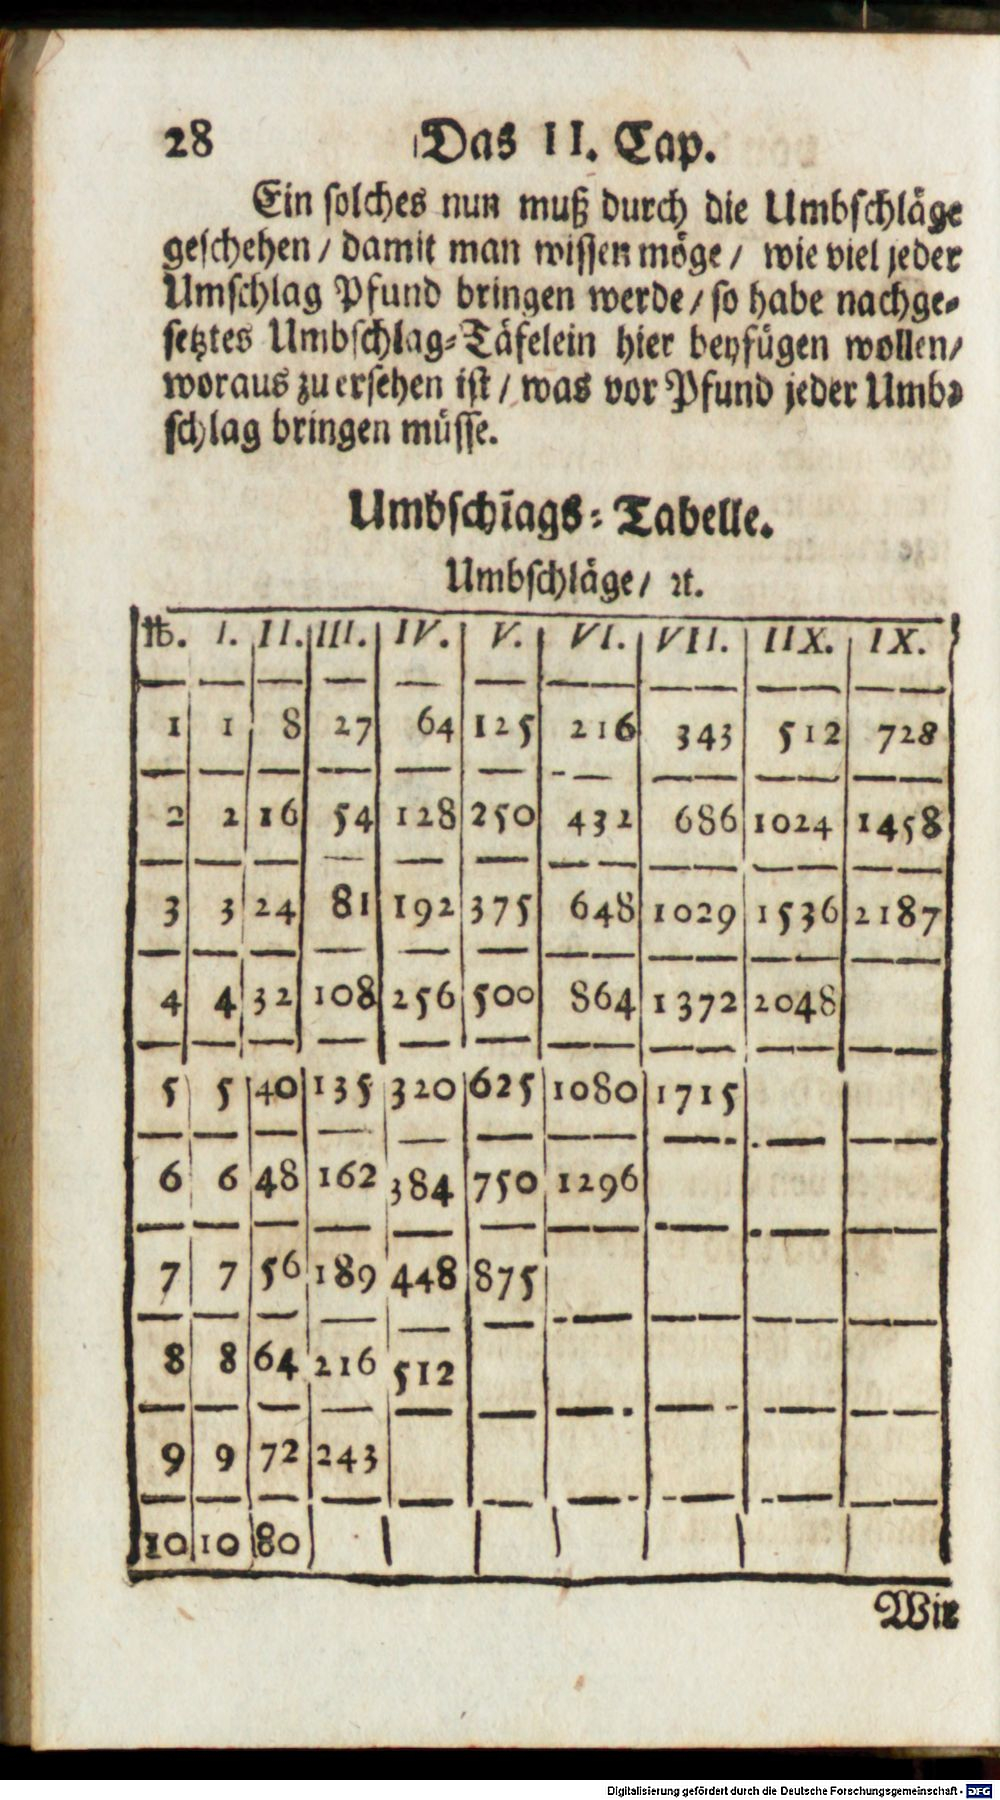 28 Das II. Cap.
Ein solches nun muß durch die Umbschläge
geschehen / damit man wissen möge / wie viel jeder
Umschlag Pfund bringen werde / so habe nachge-
setztes Umbschlag-Täfelein hier beyfügen wollen /
woraus zu ersehen ist / was vor Pfund jeder Umb-
schlag bringen müsse.
Umbschlags-Tabelle.
Umbschläge / ꝛc.
℔. I. II. III. IV. V. VI. VII. IIX. IX.
1 1 8 27 64 125 216 343 512 728
2 2 16 54 128 250 432 686 1024 1458
3 3 24 81 192 375 648 1029 1536 2187
4 4 32 108 256 500 864 1372 2048
5 5 40 135 320 625 1080 1715
6 6 48 162 384 750 1296
7 7 56 189 448 875
8 8 64 216 512
9 9 72 243
10 10 80
Wir
Digitalisierung gefördert durch die Deutsche Forschungsgemeinschaft - DFG